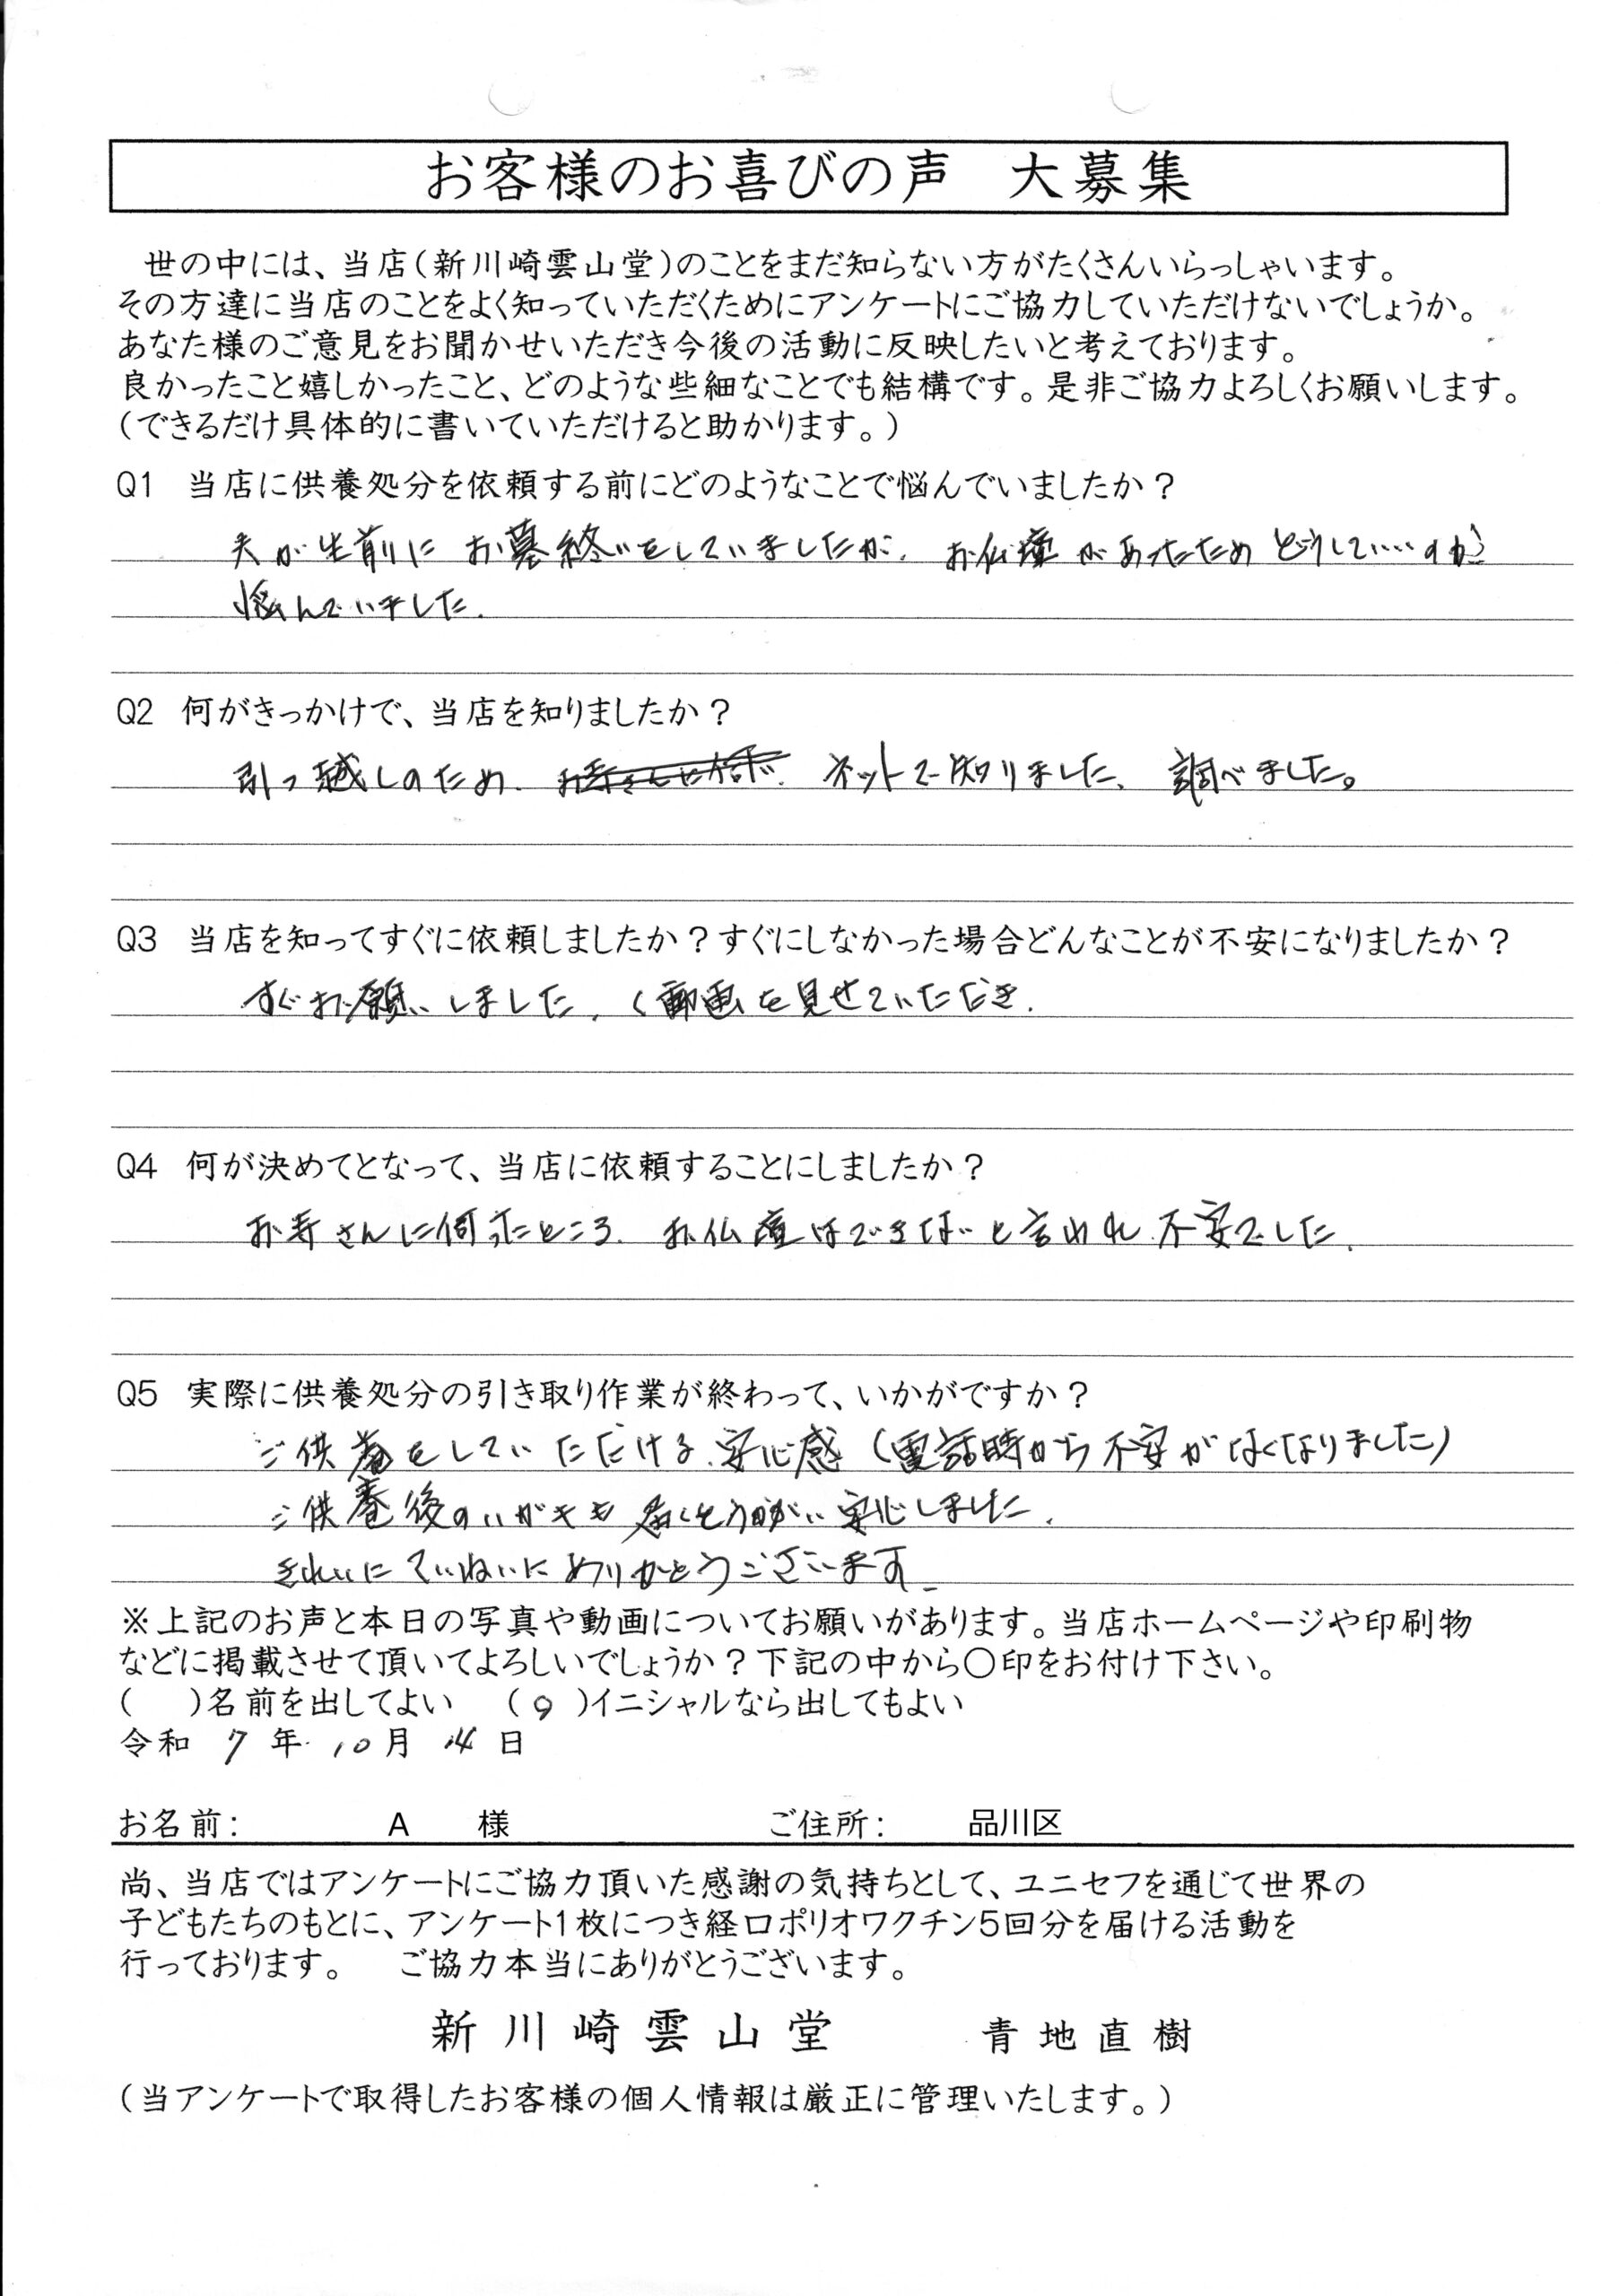 お客様のお喜びの声　大募集
世の中には、当店（新川崎雲山堂）のことをまだ知らない方がたくさんいらっしゃいます。
その方達に当店のことをよく知っていただくためにアンケートにご協力していただけないでしょうか。
あなた様のご意見をお聞かせいただき今後の活動に反映したいと考えております。
良かったこと嬉しかったこと、どのような些細なことでも結構です。是非ご協力よろしくお願いします。
（できるだけ具体的に書いていただけると助かります。）
Q1　当店に供養処分を依頼する前にどのようなことで悩んでいましたか？
夫が生前に お墓終いをしていましたが、お仏壇があったため どうしていいのか
悩んでいました。
Q2　何がきっかけで、当店を知りましたか？
引っ越しのため、ネットで知りました、調べました。
Q3　当店を知ってすぐに依頼しましたか？すぐにしなかった場合どんなことが不安になりましたか？
すぐお願いしました。動画を見せていただき.
Q4　何が決めてとなって、当店に依頼することにしましたか？
お寺さんに伺ったところ、お仏壇はできないと言われ 不安でした。
Q5　実際に供養処分の引き取り作業が終わって、いかがですか？
ご供養をしていただける、安心感（電話時から不安がなくなりました）
ご供養後のハガキも 届くそうで 安心しました。
きれいに ていねいに ありがとうございます。
※上記のお声と本日の写真や動画についてお願いがあります。当店ホームページや印刷物
などに掲載させて頂いてよろしいでしょうか？下記の中から〇印をお付け下さい。
（　　）名前を出してよい　（○）イニシャルなら出してもよい
令和 7 年 10 月 14 日
お名前：　A　様　ご住所：　品川区
尚、当店ではアンケートにご協力頂いた感謝の気持ちとして、ユニセフを通じて世界の
子どもたちのもとに、アンケート1枚につき経口ポリオワクチン5回分を届ける活動を
行っております。　ご協力本当にありがとうございます。
新川崎雲山堂　青地直樹
（当アンケートで取得したお客様の個人情報は厳正に管理いたします。）